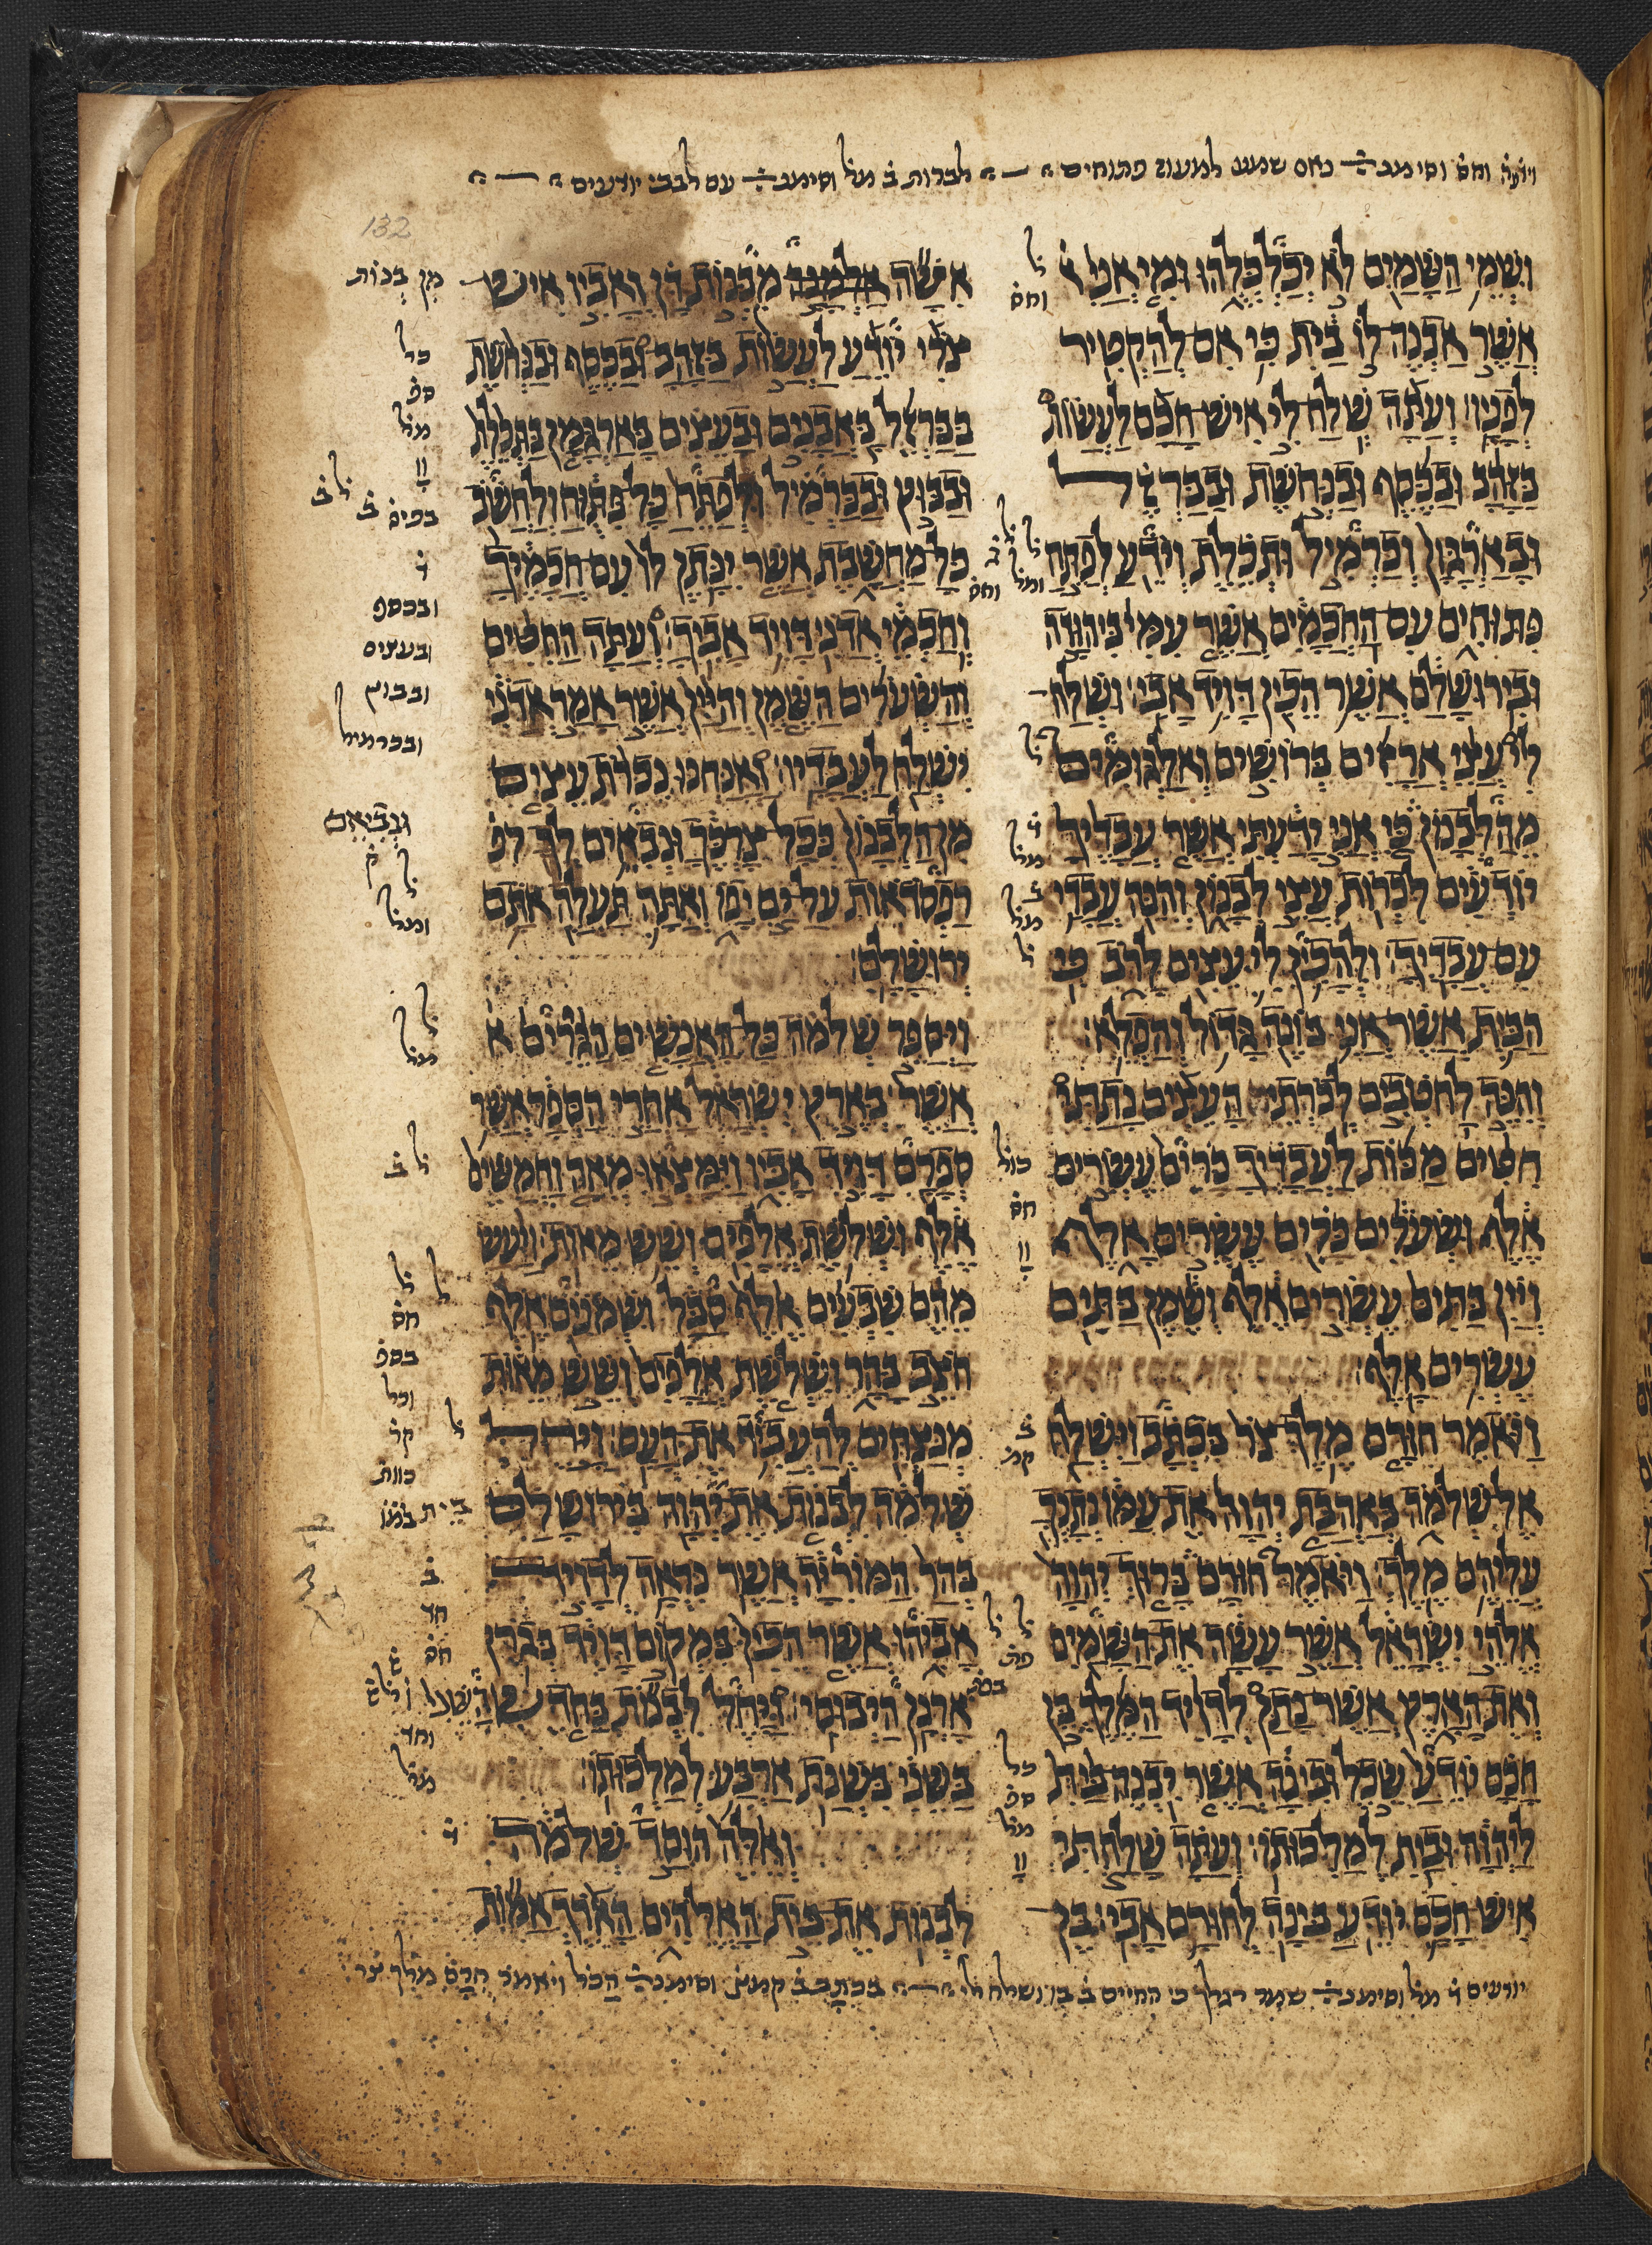 וידע וחס וסימנ כאס שמעו למעוז פתוחים לכרות ב מל וסימנ עם לבבי יודעים
132
ושמי השמים לא יכלכלהו ומי אני
אשר אבנה לו בית כי אם להקטיר
לפניו׃ ועתה שלח לי איש חכם לעשות
בזהב ובכסף ובנחשת ובברזל
ובארגון וכרמיל ותכלת וידע לפתח
פתוחים עם החכמים אשר עמי ביהודה
ובירושלם אשר הכין דויד אבי׃ ושלח
לי עצי ארזים ברושים ואלגומים
מהלבנון כי אני ידעתי אשר עבדיך
יודעים לכרות עצי לבנון והנה עבדי
עם עבדיך׃ ולהכין לי עצים לרב כי
הבית אשר אני בונה גדול והפלא׃
והנה לחטבים לכרתי העצים נתתי
חטים מכות לעבדיך כרים עשרים
אלף ושערים כרים עשרים אלף
ויין בתים עשרים אלף ושמן בתים
עשרים אלף׃
ויאמר חורם מלך צר בכתב וישלח
אל שלמה באהבת יהוה את עמו נתנך
עליהם מלך׃ ויאמר חורם ברוך יהוה
אלהי ישראל אשר עשה את השמים
ואת הארץ אשר נתן לדויד המלך בן
חכם יודע שכל ובינה אשר יבנה בית
ליהוה ובית למלכותו׃ ועתה שלחתי
איש חכם יודע בינה לחורם אבי׃ בן
אשה מן בנות דן ואביו איש
צרי יודע לעשות בזהב ובכסף ובנחשת
בברזל באבנים ובעצים בארגמן בתכלת
ובבוץ ובכרמיל ולפתח כל פתוח ולחשב
כל מחשבת אשר ינתן לו עם חכמיך
וחכמי אדני דויד אביך׃ ועתה החטים
והשערים השמן והיין אשר אמר אדני
ישלח לעבדיו׃ ואנחנו נכרת עצים
מן הלבנון ככל צרכך ונביאם לך
רפסדאות על ים יפו ואתה תעלה אתם
ירושלם׃
ויספר שלמה כל האנשים הגרים
אשר בארץ ישראל אחרי הספר אשר
ספרם דויד אביו וימצאו מאה וחמשים
אלף ושלשת אלפים ושש מאות׃ ויעש
מהם שבעים אלף סבל ושמנים אלף
חצב בהר ושלשת אלפים ושש מאות
מנצחים להעביד את העם׃ ויחל
שלמה לבנות את בית יהוה בירושלם
בהר המוריה אשר נראה לדויד
אביהו אשר הכין במקום דויד בגרן
ארנן היבוסי׃ ויחל לבנות בחדש השני
בשני בשנת ארבע למלכותו׃
ואלה הוסד שלמה
לבנות את בית האלהים הארך אמות
מן בנות
כל
ספ
מל
ובכסף
ובעצים
ובבוץ
ובכרמיל
ומל
מל
חס
וכל
בית
חס
וחד
מל
יודעים מל וסימנ שמר רגלך כי החיים ושלח לי בכתב ב קמצ וסימנ הכל ויאמר חרם מלך צר